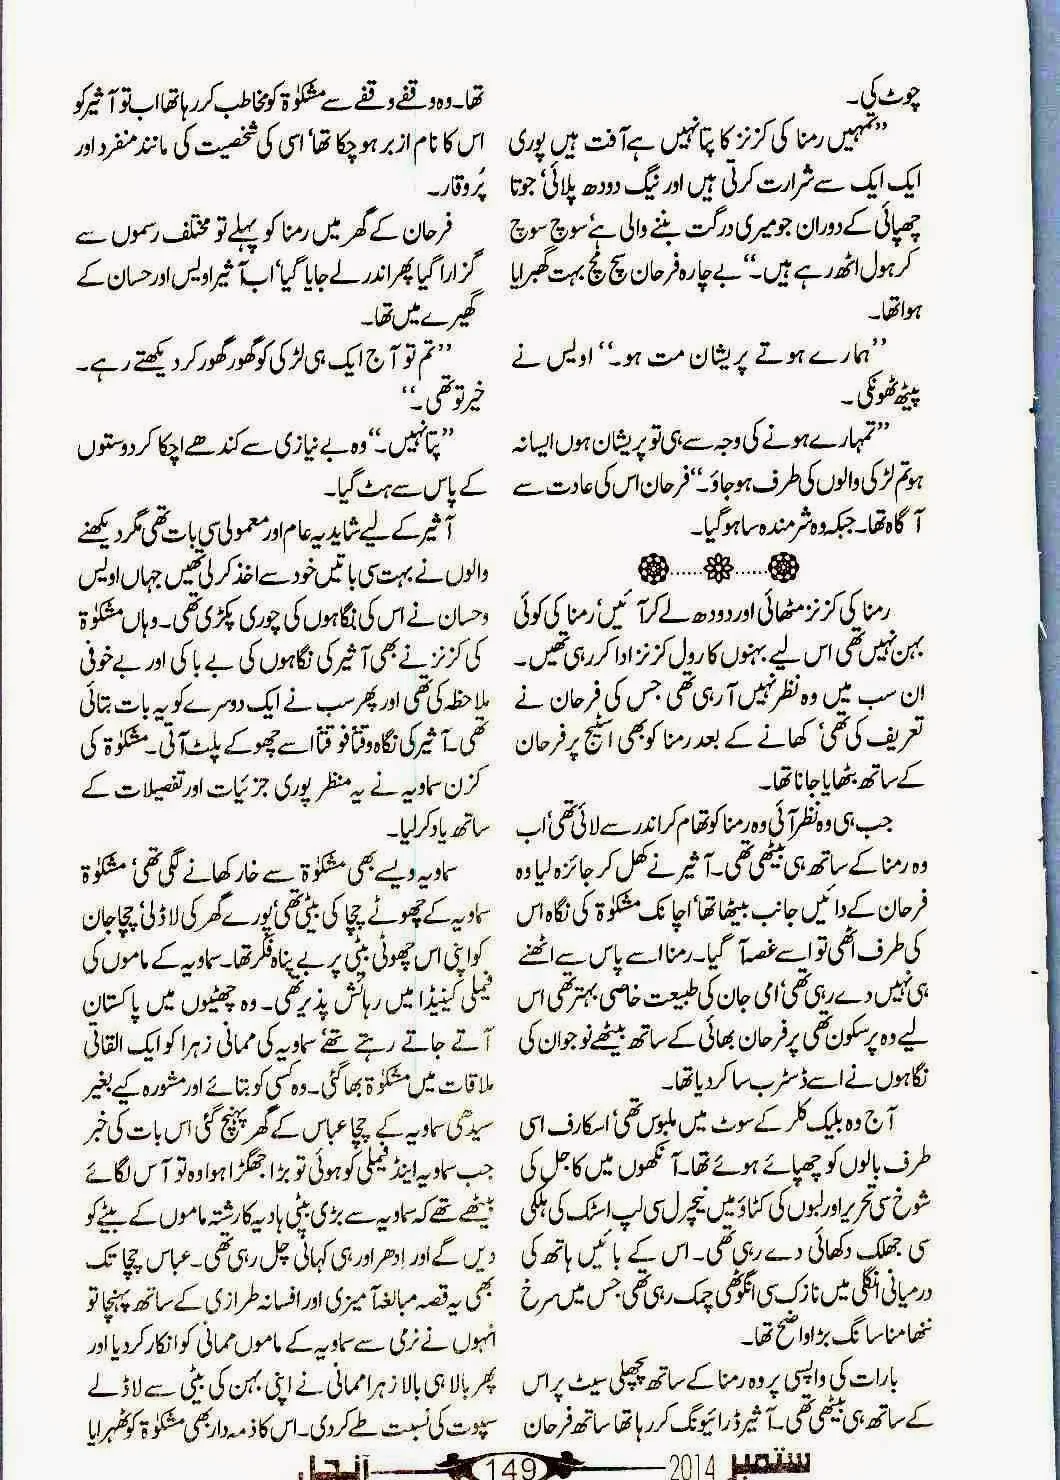 چوٹ کی۔
”تمہیں رمنا کی کزنز کا پتا نہیں ہے آفت ہیں پوری
ایک ایک سے شرارت کرتی ہیں اور نیگ دودھ پلائی‘ جوتا
چھپائی کے دوران جو میری درگت بننے والی ہے‘ سوچ سوچ
کر ہول اٹھ رہے ہیں۔“ بے چارہ فرحان سچ مچ بہت گھبرایا
ہوا تھا۔
”ہمارے ہوتے پریشان مت ہو۔“ اویس نے
پیٹھ ٹھونکی۔
”تمہارے ہونے کی وجہ سے ہی تو پریشان ہوں ایسا نہ
ہو تم لڑکی والوں کی طرف ہو جاؤ۔“ فرحان اس کی عادت سے
آگاہ تھا۔ جبکہ وہ شرمندہ سا ہو گیا۔
رمنا کی کزنز مٹھائی اور دودھ لے کر آئیں‘ رمنا کی کوئی
بہن نہیں تھی اس لیے بہنوں کا رول کزنز ادا کر رہی تھیں۔
ان سب میں وہ نظر نہیں آ رہی تھی جس کی فرحان نے
تعریف کی تھی‘ کھانے کے بعد رمنا کو بھی اسٹیج پر فرحان
کے ساتھ بٹھایا جانا تھا۔
جب ہی وہ نظر آئی وہ رمنا کو تھام کر اندر سے لائی تھی‘ اب
وہ رمنا کے ساتھ ہی بیٹھی تھی۔ آثیر نے کھل کر جائزہ لیا وہ
فرحان کے دائیں جانب بیٹھا تھا‘ اچانک مشکوٰۃ کی نگاہ اس
کی طرف اٹھی تو اسے غصہ آ گیا۔ رمنا اسے پاس سے اٹھنے
ہی نہیں دے رہی تھی‘ امی جان کی طبیعت خاصی بہتر تھی اس
لیے وہ پرسکون تھی پر فرحان بھائی کے ساتھ بیٹھے نوجوان کی
نگاہوں نے اسے ڈسٹرب سا کر دیا تھا۔
آج وہ بلیک کلر کے سوٹ میں ملبوس تھی‘ اسکارف اسی
طرف بالوں کو چھپائے ہوئے تھا۔ آنکھوں میں کاجل کی
شوخ سی تحریر اور لبوں کی کٹاؤ میں نیچرل سی لپ اسٹک کی ہلکی
سی جھلک دکھائی دے رہی تھی۔ اس کے بائیں ہاتھ کی
درمیانی انگلی میں نازک سی انگوٹھی چمک رہی تھی جس میں سرخ
ننھا منا سا نگ بڑا واضح تھا۔
بارات کی واپسی پر وہ رمنا کے ساتھ پچھلی سیٹ پر اس
کے ساتھ ہی بیٹھی تھی۔ آثیر ڈرائیونگ کر رہا تھا ساتھ فرحان
تھا۔ وہ وقفے وقفے سے مشکوٰۃ کو مخاطب کر رہا تھا اب تو آثیر کو
اس کا نام ازبر ہو چکا تھا‘ اسی کی شخصیت کی مانند منفرد اور
پُروقار۔
فرحان کے گھر میں رمنا کو پہلے تو مختلف رسموں سے
گزارا گیا پھر اندر لے جایا گیا‘ اب آثیر اویس اور حسان کے
گھیرے میں تھا۔
”تم تو آج ایک ہی لڑکی کو گھور گھور کر دیکھتے رہے۔
خیر تو تھی۔“
”پتا نہیں۔“ وہ بے نیازی سے کندھے اچکا کر دوستوں
کے پاس سے ہٹ گیا۔
آثیر کے لیے شاید یہ عام اور معمولی سی بات تھی مگر دیکھنے
والوں نے بہت سی باتیں خود سے اخذ کر لی تھیں جہاں اویس
و حسان نے اس کی نگاہوں کی چوری پکڑی تھی۔ وہاں مشکوٰۃ
کی کزنز نے بھی آثیر کی نگاہوں کی بے باکی اور بے خوفی
ملاحظہ کی تھی اور پھر سب نے ایک دوسرے کو یہ بات بتائی
تھی۔ آثیر کی نگاہ وقتاً فوقتاً اسے چھو کے پلٹ آتی۔ مشکوٰۃ کی
کزن سماویہ نے یہ منظر پوری جزئیات اور تفصیلات کے
ساتھ یاد کر لیا۔
سماویہ ویسے بھی مشکوٰۃ سے خار کھانے لگی تھی‘ مشکوٰۃ
سماویہ کے چھوٹے چچا کی بیٹی تھی‘ پورے گھر کی لاڈلی‘ چچا جان
کو اپنی اس چھوٹی بیٹی پر بے پناہ فخر تھا۔ سماویہ کے ماموں کی
فیملی کینیڈا میں رہائش پذیر تھی۔ وہ چھٹیوں میں پاکستان
آتے جاتے رہتے تھے‘ سماویہ کی ممانی زہرا کو ایک القاتی
ملاقات میں مشکوٰۃ بھا گئی۔ وہ کسی کو بتائے اور مشورہ کیے بغیر
سیدھی سماویہ کے چچا عباس کے گھر پہنچ گئی اس بات کی خبر
جب سماویہ اینڈ فیملی کو ہوئی تو بڑا جھگڑا ہوا وہ تو آس لگائے
بیٹھے تھے کہ سماویہ سے بڑی بیٹی ہادیہ کا رشتہ ماموں کے بیٹے کو
دیں گے اور ادھر اور ہی کہانی چل رہی تھی۔ عباس چچا تک
بھی یہ قصہ مبالغہ آمیزی اور افسانہ طرازی کے ساتھ پہنچا تو
انہوں نے نرمی سے سماویہ کے ماموں ممانی کو انکار کر دیا اور
پھر بالا ہی بالا زہرا ممانی نے اپنی بہن کی بیٹی سے لاڈلے
سپوت کی نسبت طے کر دی۔ اس کا ذمہ دار بھی مشکوٰۃ کو ٹھہرایا
ستمبر 2014 149 آنچل